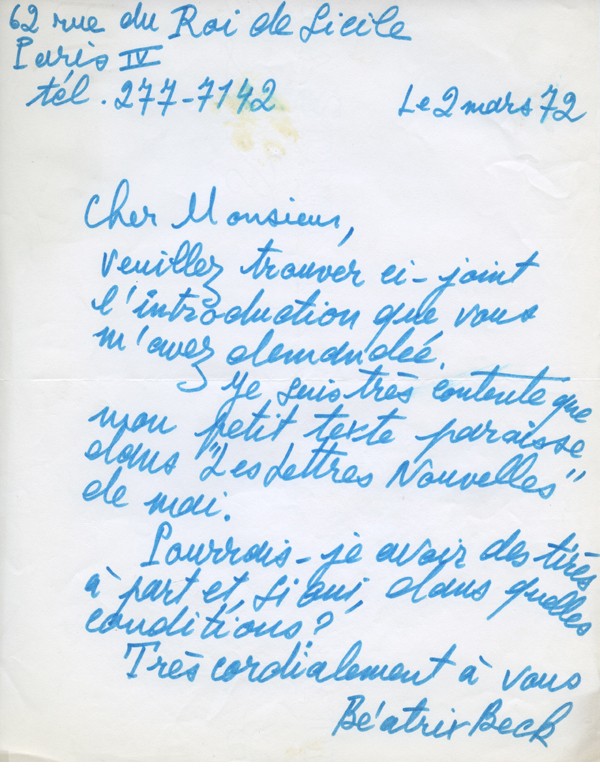 62 rue du Roi de Sicile
Paris IV
tél. 277-7142
Le 2 mars 72
Cher Monsieur,
veuillez trouver ci-joint
l'introduction que vous
m'avez demandée.
Je suis très contente que
mon petit texte paraisse
dans "Les Lettres Nouvelles"
de mai.
Pourrais-je avoir des tirés
à part et, si oui, dans quelles
conditions?
Très cordialement à vous
Béatrix Beck